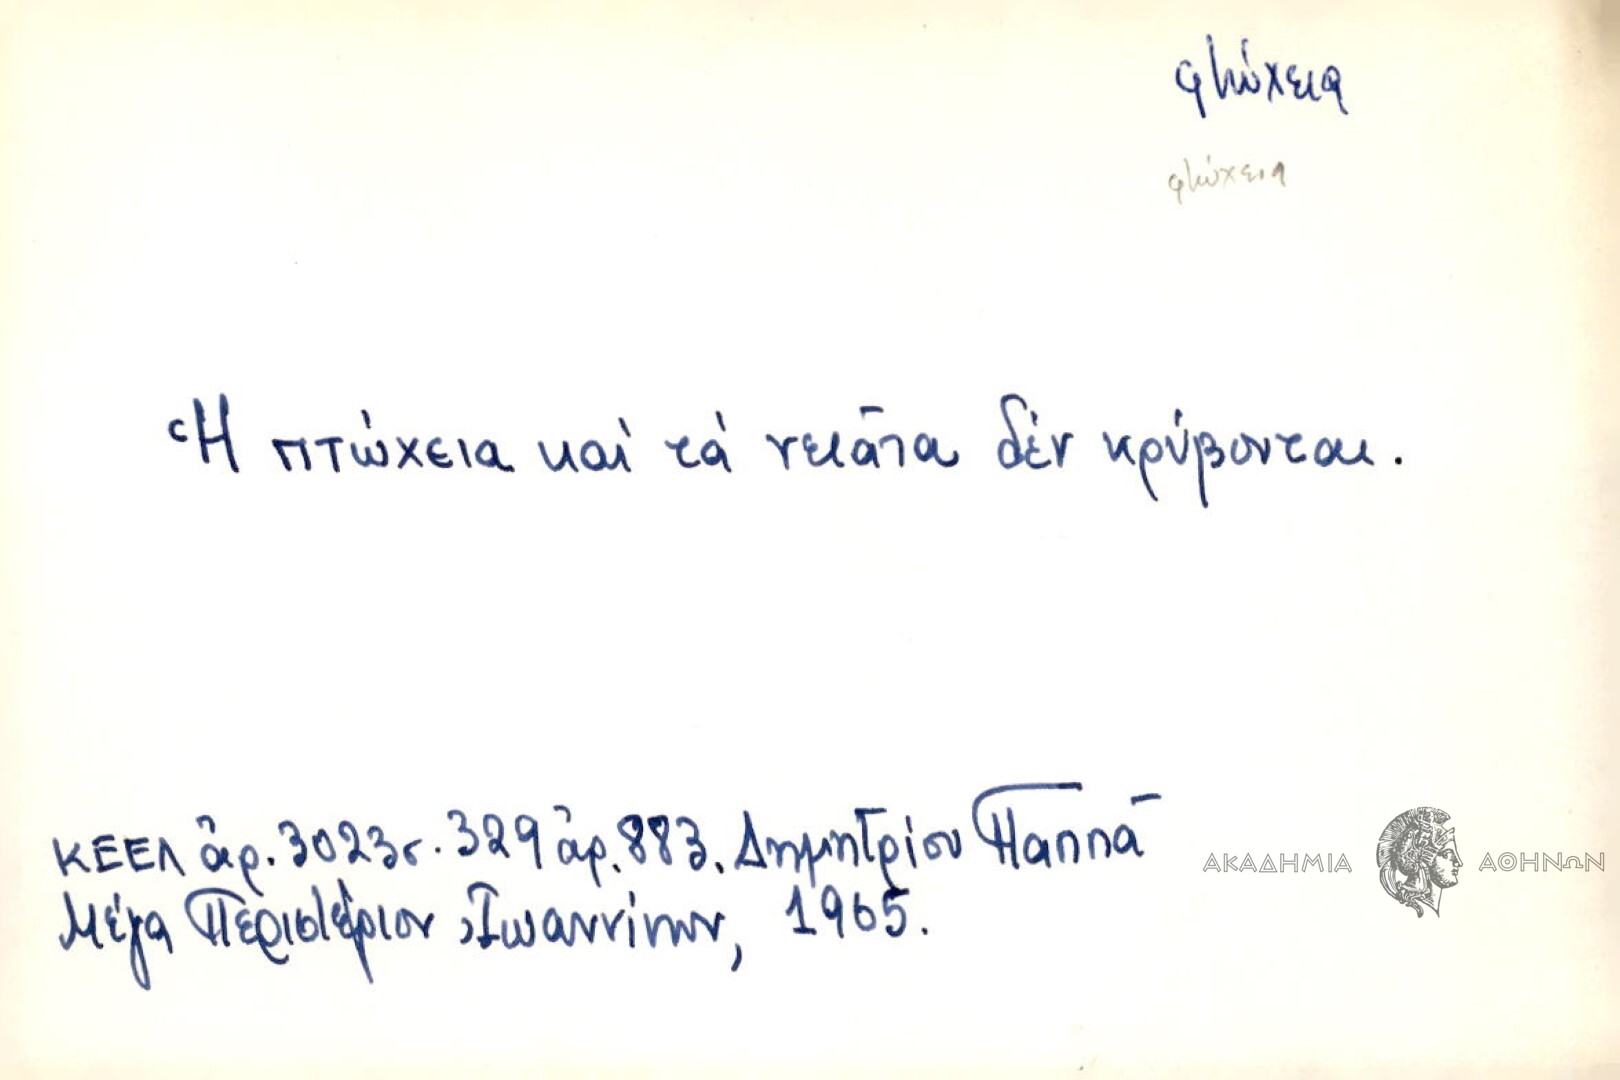 φτώχεια
φτώχεια
Ἡ πτώχεια καὶ τὰ νειᾶτα δὲν κρύβονται.
ΚΕΕΛ ἀρ. 3023 σ. 329 ἀρ. 883. Δημητρίου Παππᾶ
ΑΚΑΔΗΜΙΑ ΑΘΗΝΩΝ
Μέγα Περιστέριον Ἰωαννίνων, 1965.